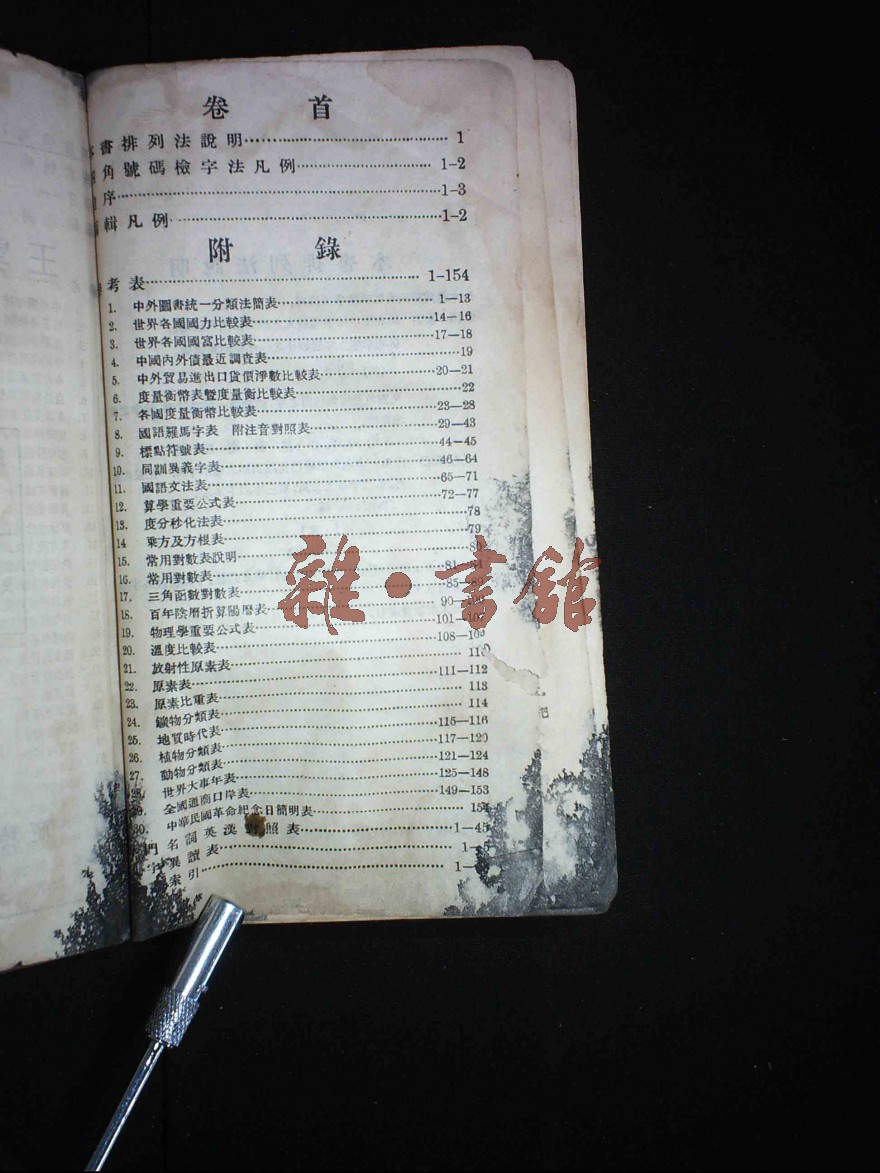 卷 首
書排列法說明 1
角號碼檢字法凡例 1-2
序 1-3
輯凡例 1-2
附 錄
考表 1-154
1. 中外圖書統一分類法簡表 1—13
2. 世界各國國力比較表 14—16
3. 世界各國國富比較表 17—18
4. 中國內外債最近調查表 19
5. 中外貿易進出口貨價淨數比較表 20—21
6. 度量衡幣表暨度量衡比較表 22
7. 各國度量衡幣比較表 23—28
8. 國語羅馬字表 附注音對照表 29—43
9. 標點符號表 44—45
10. 同訓異義字表 46—64
11. 國語文法表 65—71
12. 算學重要公式表 72—77
13. 度分秒化法表 78
14 乘方及方根表 79
15. 常用對數表說明
16. 常用對數表 81—
17. 三角函數對數表 85—
18. 百年陰曆折算陽曆表 90—
19. 物理學重要公式表 101—107
20. 溫度比較表 108—109
21. 放射性原素表 110
22. 原素表 111—112
23. 原素比重表 113
24. 鑛物分類表 114
25. 地質時代表 115—116
26. 植物分類表 117—120
27. 動物分類表 121—124
28. 世界大事年表 125—148
29. 全國通商口岸表 149—153
30. 中華民國革命紀念日簡明表 15
門名詞英漢對照表 1—45
字異讀表 1—
索引 1—
雜·書館
王